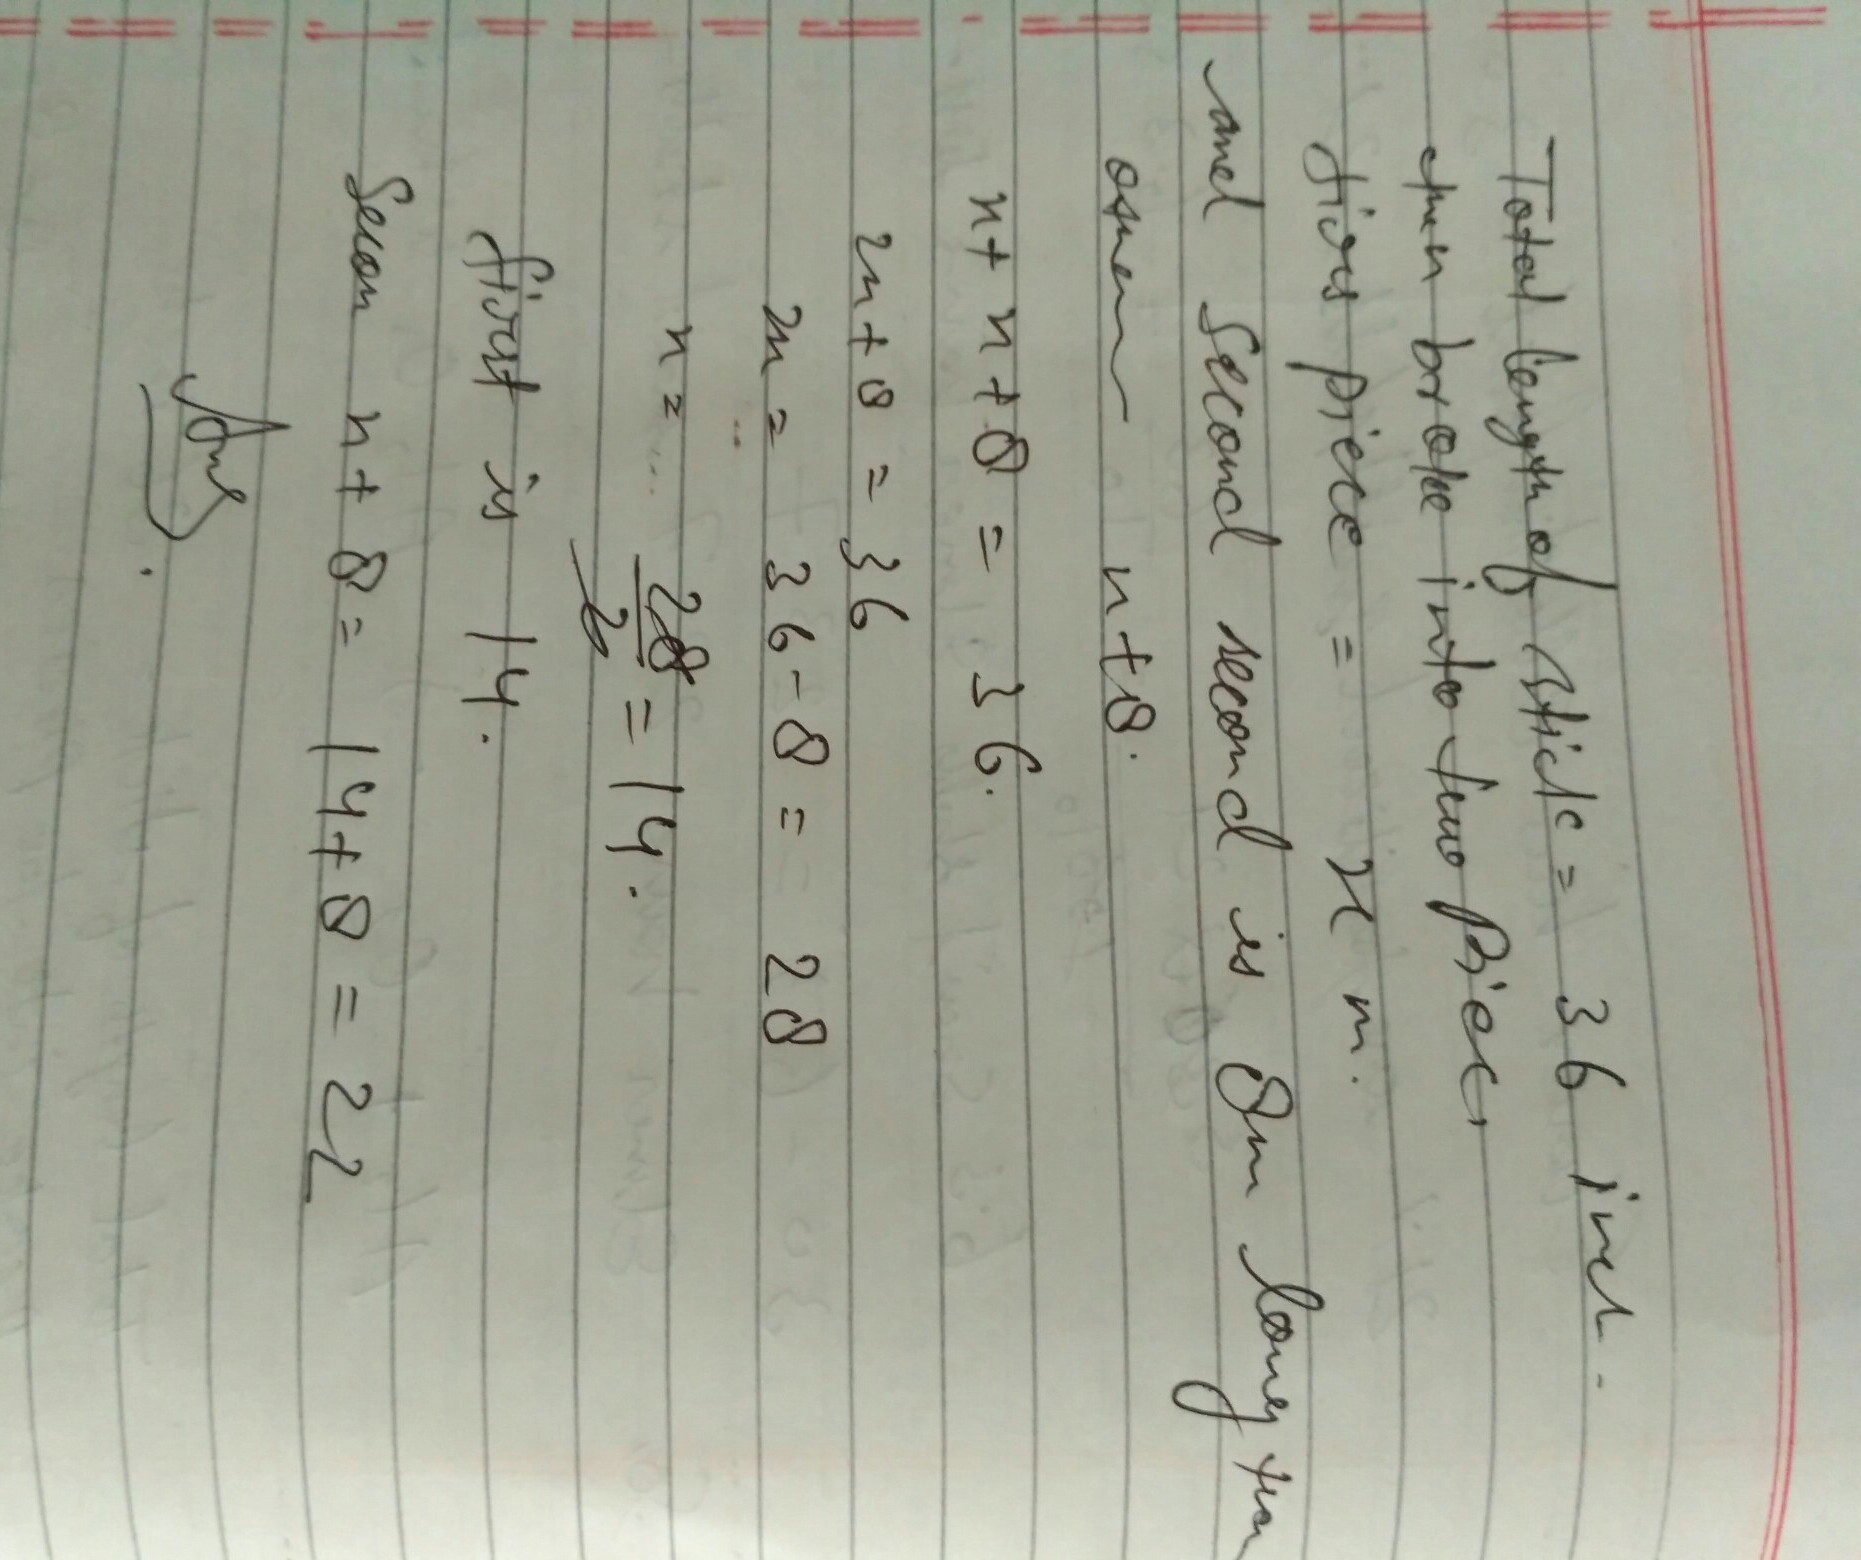 Total length of stick = 36 inch.
then broke into two piece,
first piece = x m.
and second second is 8m long than
other n+8.
n + n + 8 = 36.
2n + 8 = 36
2n = 36 - 8 = 28
n = 28/2 = 14.
first is 14.
Secon n + 8 = 14 + 8 = 22
Ans.